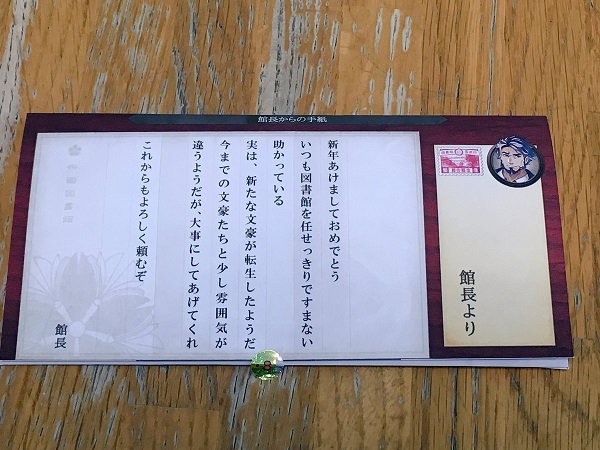 館長からの手紙
新年あけましておめでとう
いつも図書館を任せっきりですまない
助かっている
実は、新たな文豪が転生したようだ
今までの文豪たちと少し雰囲気が
違うようだが、大事にしてあげてくれ
これからもよろしく頼むぞ
館長
館長より